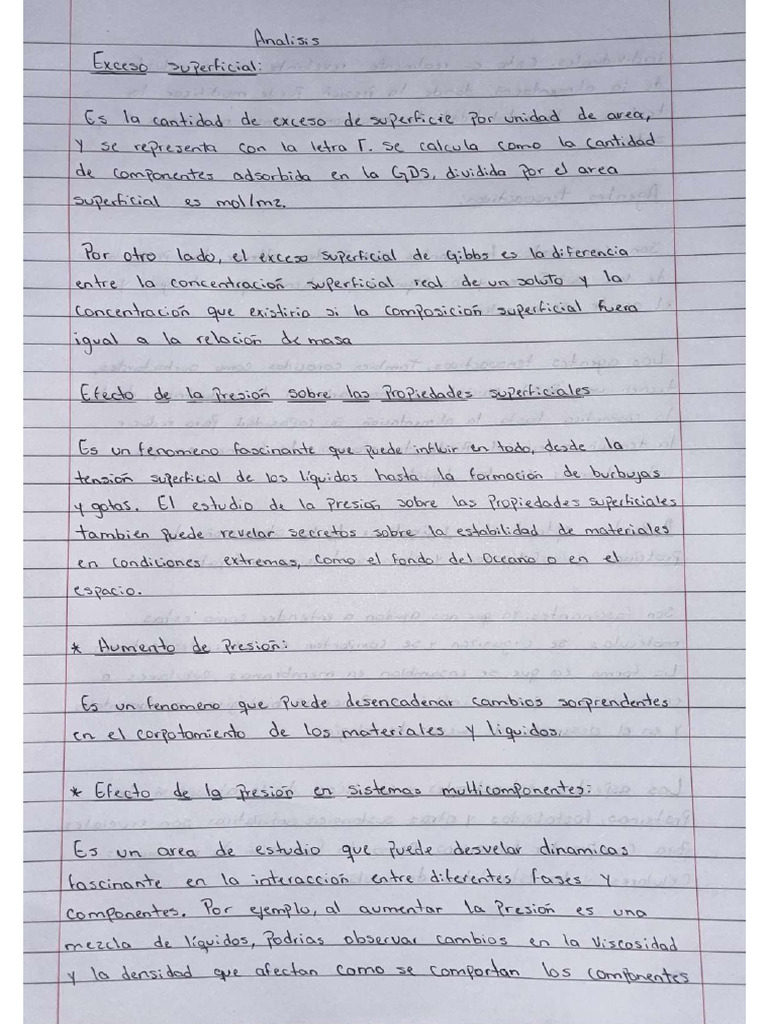 Analisis
Exceso superficial:
Es la cantidad de exceso de superficie por unidad de area,
y se representa con la letra Γ. se calcula como la cantidad
de componentes adsorbida en la GDS, dividida por el area
superficial es mol/m2.
Por otro lado, el exceso superficial de Gibbs es la diferencia
entre la concentración superficial real de un soluto y la
concentración que existiria si la composición superficial fuera
igual a la relación de masa
Efecto de la Presión sobre las Propiedades superficiales
Es un fenomeno fascinante que puede influir en todo, desde la
tensión superficial de los líquidos hasta la formación de burbujas
y gotas. El estudio de la Presión sobre las Propiedades superficiales
tambien puede revelar secretos sobre la estabilidad de materiales
en condiciones extremas, como el fondo del Oceano o en el
espacio.
* Aumento de Presión:
Es un fenomeno que puede desencadenar cambios sorprendentes
en el corpotamiento de los materiales y liquidos.
* Efecto de la Presión en sistemas multicomponentes:
Es un area de estudio que puede desvelar dinamicas
fascinante en la interacción entre diferentes fases y
componentes. Por ejemplo, al aumentar la Presión es una
mezcla de líquidos, Podrias observar cambios en la viscosidad
y la densidad que afectan como se comportan los componentes